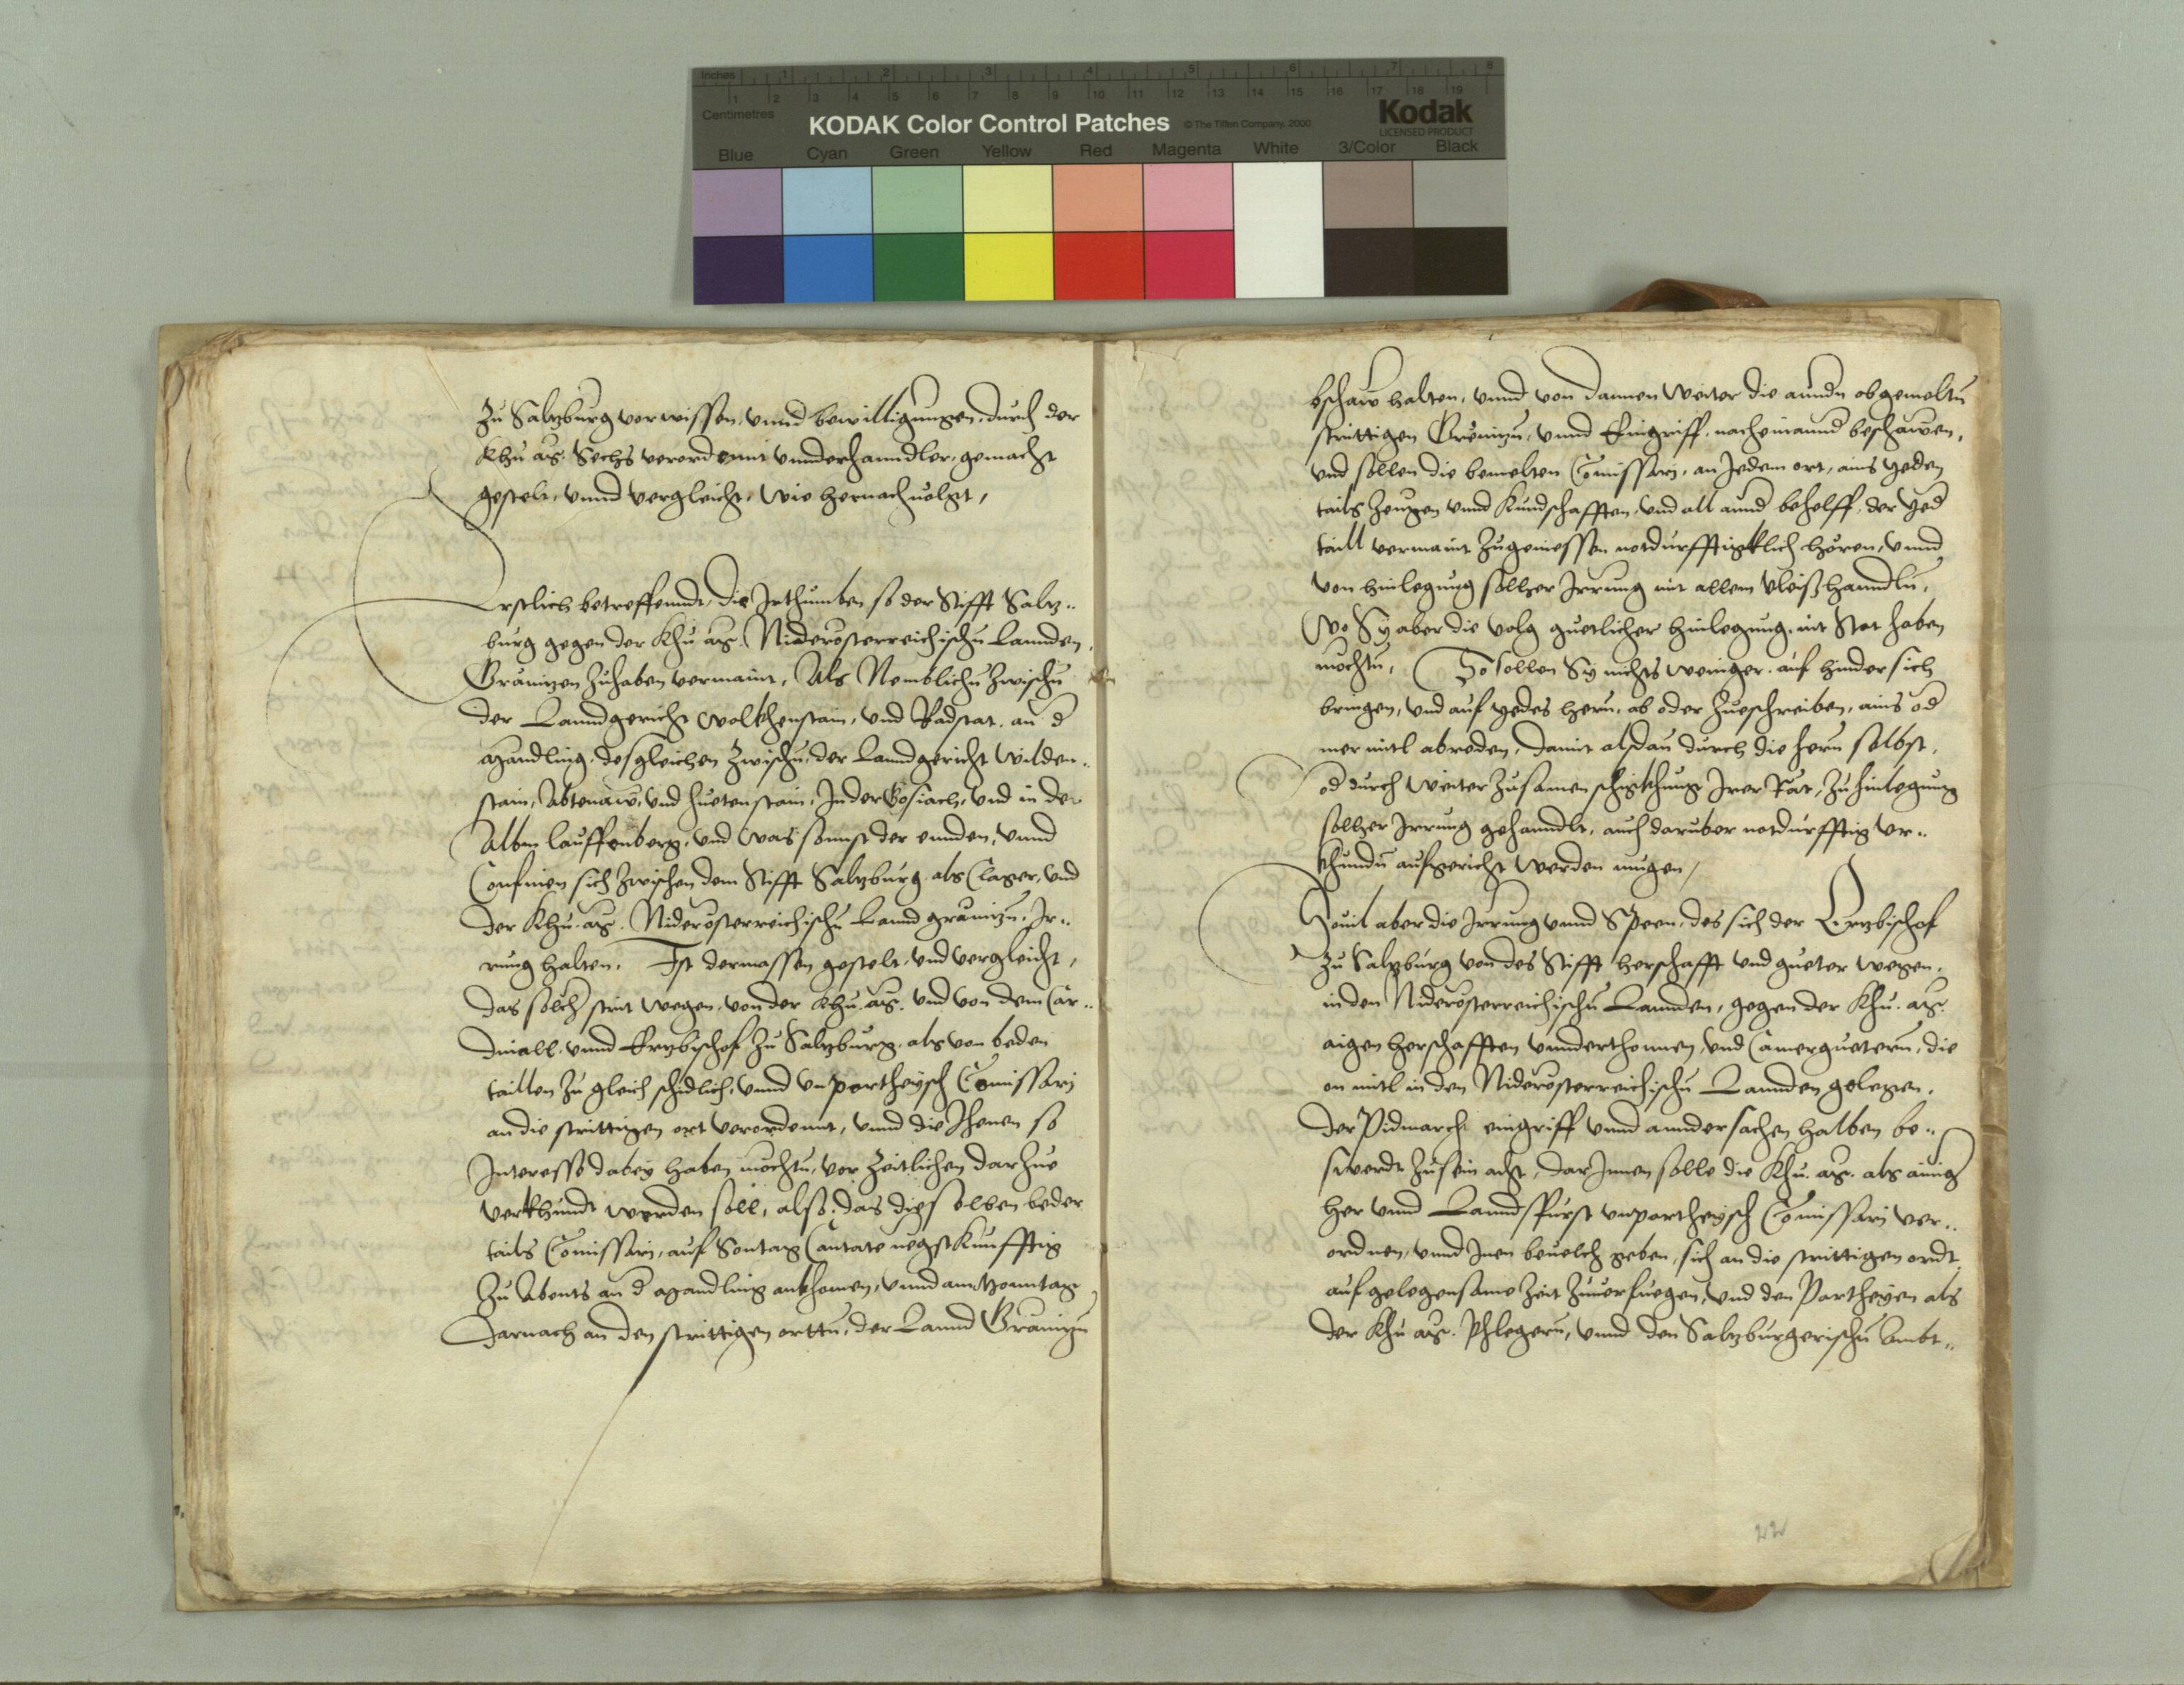 Inches 1 2 3 4 5 6 7 8
Centimetres 1 2 3 4 5 6 7 8 9 10 11 12 13 14 15 16 17 18 19
KODAK Color Control Patches © The Tiffen Company, 2000 Kodak
LICENSED PRODUCT
Blue Cyan Green Yellow Red Magenta White 3/Color Black
zu Saltzburg vorwissen, vnnd bewilligungen, durch der
Khu. Mt. Sechs verordennt vnnderhanndler, gemacht
gestelt, vnnd vergleicht, wie hernachuolgt,
Erstlich betreffenndt, die Irthumben so der Stifft Saltz..
burg gegen der Khu. Mt. Niderösterreichischn Lannden,
Gränitzen zuhaben vermaint, Als Nemblichn zwischn
der Lanndgericht Wolkhenstain, vnd Radstat, an d
Manndling, desgleichen zwischn, der Lanndgericht Wilden..
stain, Abtenaw, vnd Huetenstain, In der Gosiach, vnd in der
Alben lauffenberg, vnd was sonnst der ennden, vnnd
Confinien sich zwischen dem Stifft Saltzburg, als Clager, vnd
der Khu. Mt. Niderösterreichischn Lannd gränitzn, Ir..
rung halten. Ist dermassen gestelt, vnd vergleicht,
das solch strit wegen, von der Khu. Mt. vnd von dem Car..
dinall, vnnd Ertzbischof zu Saltzburg, als von beden
taillen zu gleich schidlich, vnnd vnpartheysch Comissarj
an die strittigen ort verordennt, vnnd die Ihenen so
Interesse dabey haben möchtn, vor zeitlichen darzue
verkhundt werden soll, also, das dieselben beder
tails Comissarj, auf Sontag Cantate negst Kunfftig
zu Abents an d Mandling ankhomen, vnnd am Monntag
darnach an den strittigen orttn, der Lannd Gränitzn
bschaw halten, vnnd von dannen weiter die anndn obgemeltn
strittigen Grenitzn, vnnd Eingriff, nacheinannd beschawen,
vnd sollen die bemelten Comissarj, an Jedem ort, ains yeden
tails zeugen vnnd Kundschafften, vnd all annd behelff, der yed
taill vermaint zugeniessen notdurfftigklich hören, vnnd
von hinlegung sollher Irrung mit allem vleiß hanndln,
Wo Sy aber die volg guetlicher hinlegung, nit Stat haben
möchtn, So sollen Sy nichts weniger, auf hinder sich
bringen, vnd auf yedes hern, ab oder Zueschreiben, ains od
mer mitl abreden, damit alsdan durch die hern selbst,
od durch weiter zusamen schickhung Irer Rät, zu hinlegung
sollher Irrung gehanndlt, auch daruber notdurfftig vr..
khundn aufgericht werden mugen,
Souil aber die Irrung vnnd Speen, des sich der Ertzbischof
zu Saltzburg von des Stifft herschafft vnd gueter wegen,
in den Niderösterreichischn Lannden, gegen der Khu. Mt.
aigen herschafften vnnderthonnen, vnd Camergueternn, die
on mitl in den Niderösterreichischn Lannden gelegen,
der Pidmarch eingriff vnnd annder sachen halben be..
swerdt zu sein acht, dar Innen solle die Khu. Mt. als ainig
her vnnd Lanndsfürst vnpartheysch Comissarj ver..
ordnen, vnnd Inen beuelch geben, sich an die strittigen ordt
auf gelegensame zeit zuuerfuegen, vnd den Partheyen als
der Khu. Mt. Phlegern, vnnd den Saltzburgerischn Ambt..
22